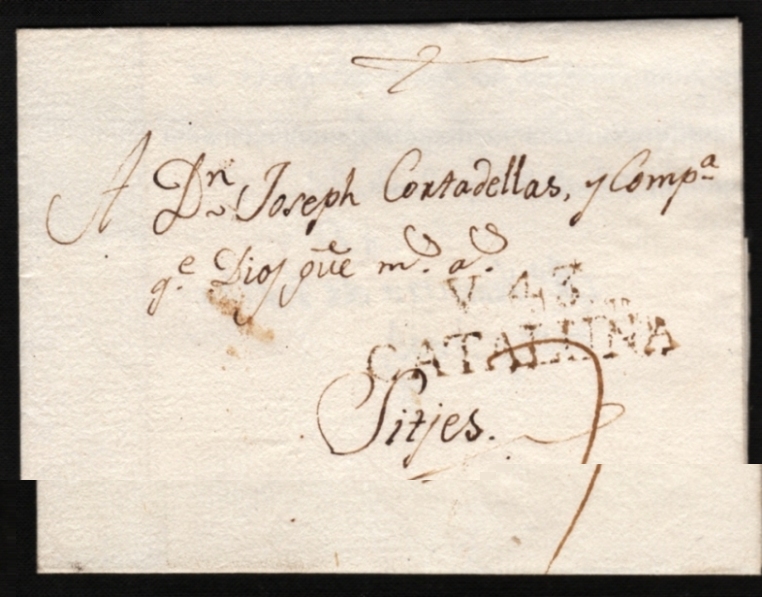 A Dn Joseph Cortadellas, y Compa
qe Dios gue ms as
V. 43
CATALUÑA
Sitjes.
7